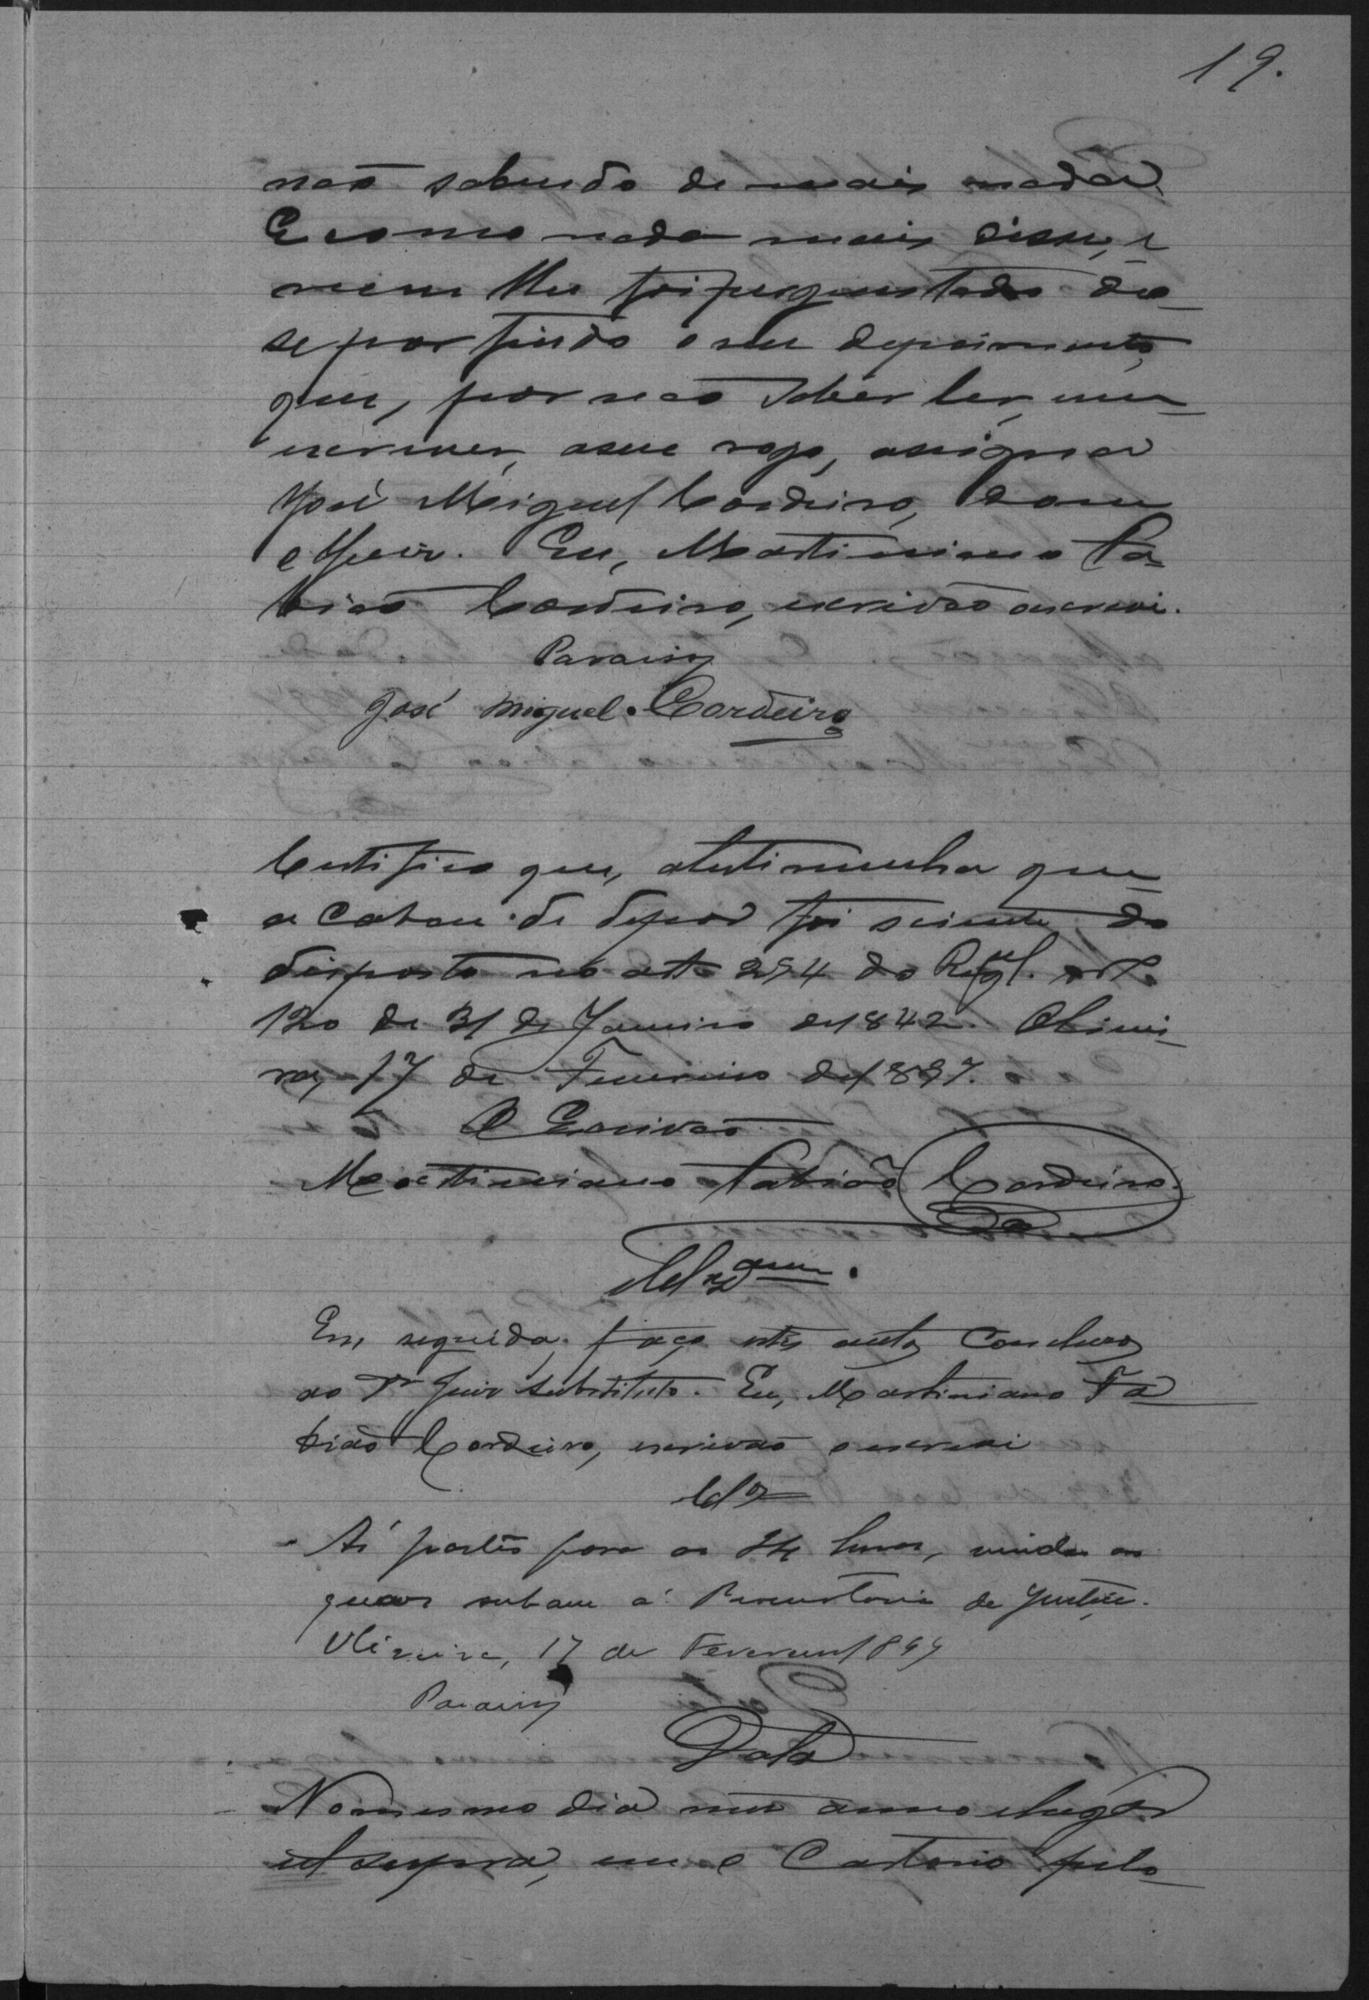 19.
não sabendo de mais nada.
E como nada mais disse, e
nem lhe foi perguntado deu-
se por findo o seu depoimento
que, por não saber ler, nem
escrever, a seu rogo, assigna
José Miguel Cordeiro, com
o Juiz. Eu, Martiniano Fa-
bião Cordeiro, escrivão o escrevi.
Paraiso
José Miguel Cordeiro
Certifico que, a testimunha que
acabou de depor foi sciente do
disposto no art. 294 do Regul. nº
120 de 31 de Janeiro de 1842. Olivei-
ra, 17 de Fevereiro de 1897.
O Escrivão
Martiniano Fabião Cordeiro
Em seguida, faço estes autos conclusos
ao Dr Juiz Substituto. Eu, Martiniano Fa-
bião Cordeiro, escrivão o escrevi
Clos
Ás partes para as 24 horas, vindas as
quaes subam á Promotoria de Justiça.
Oliveira, 17 de Fevereiro 1897
Paraiso
Data
No mesmo dia mez anno e lugar
ut supra, em o Cartorio pelo